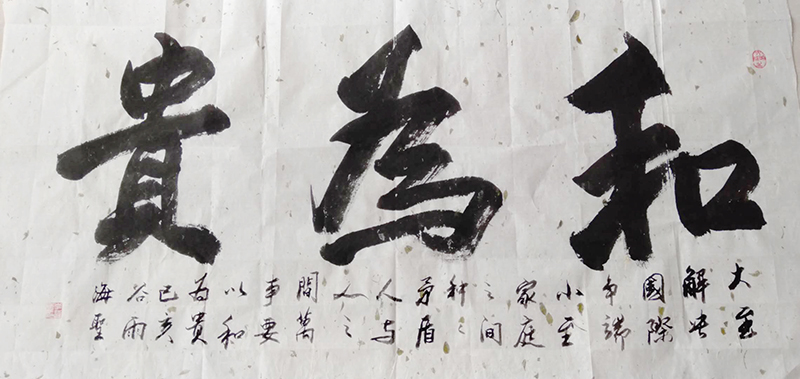 和為貴
大至
解决
國際
争端
小至
家庭
之间
种々
矛盾
人与
人之
間萬
事要
以和
为贵
己亥
谷雨
海聖